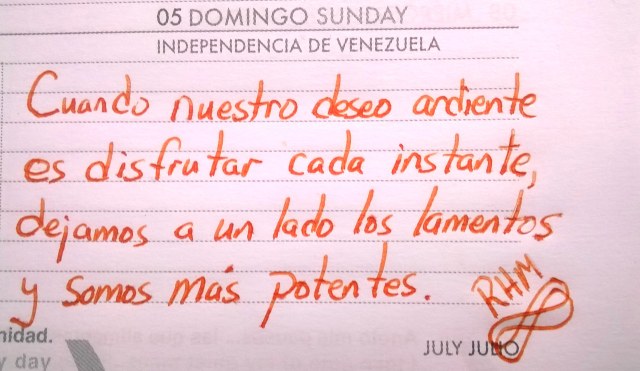 05 DOMINGO SUNDAY
INDEPENDENCIA DE VENEZUELA
Cuando nuestro deseo ardiente
es disfrutar cada instante,
dejamos a un lado los lamentos
y somos más potentes.
RHM
nidad.
y day
JULY JULIO